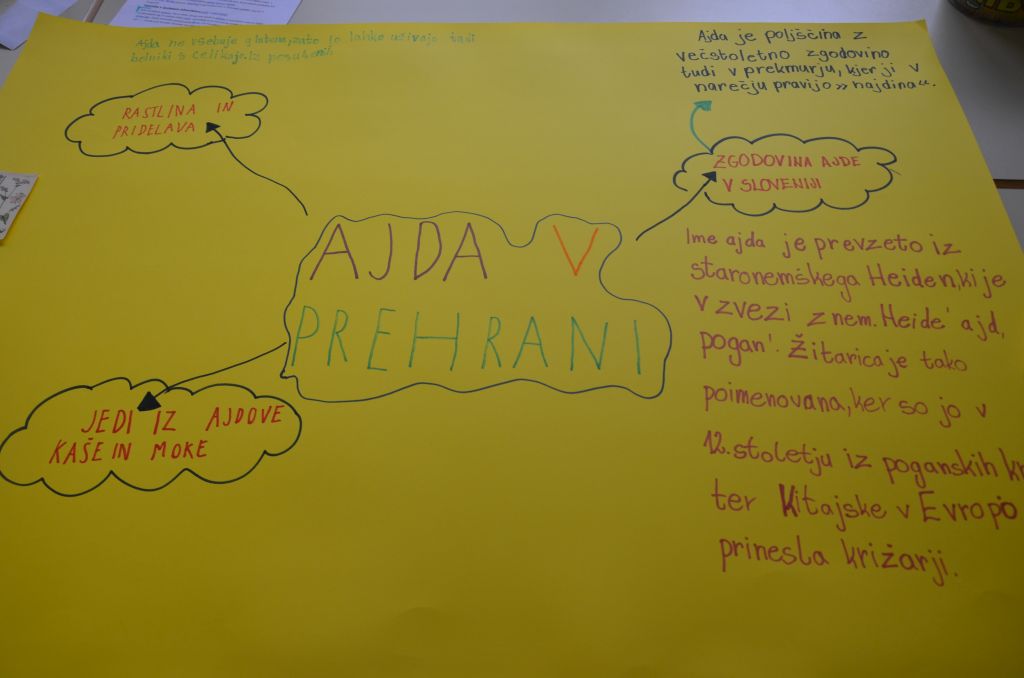 Ajda ne vsebuje glutena, zato jo lahko uživajo tudi
bolniki s celiakijo.
Ajda je poljščina z
večstoletno zgodovino
tudi v prekmurju, kjer ji v
narečju pravijo »hajdina«.
RASTLINA IN
PRIDELAVA
ZGODOVINA AJDE
V SLOVENIJI
AJDA V
PREHRANI
Ime ajda je prevzeto iz
staronemškega Heiden, ki je
v zvezi z nem. Heide' ajd,
pogan'. Žitarica je tako
poimenovana, ker so jo v
12. stoletju iz poganskih kr
ter Kitajske v Evropo
prinesla križarji.
JEDI IZ AJDOVE
KAŠE IN MOKE